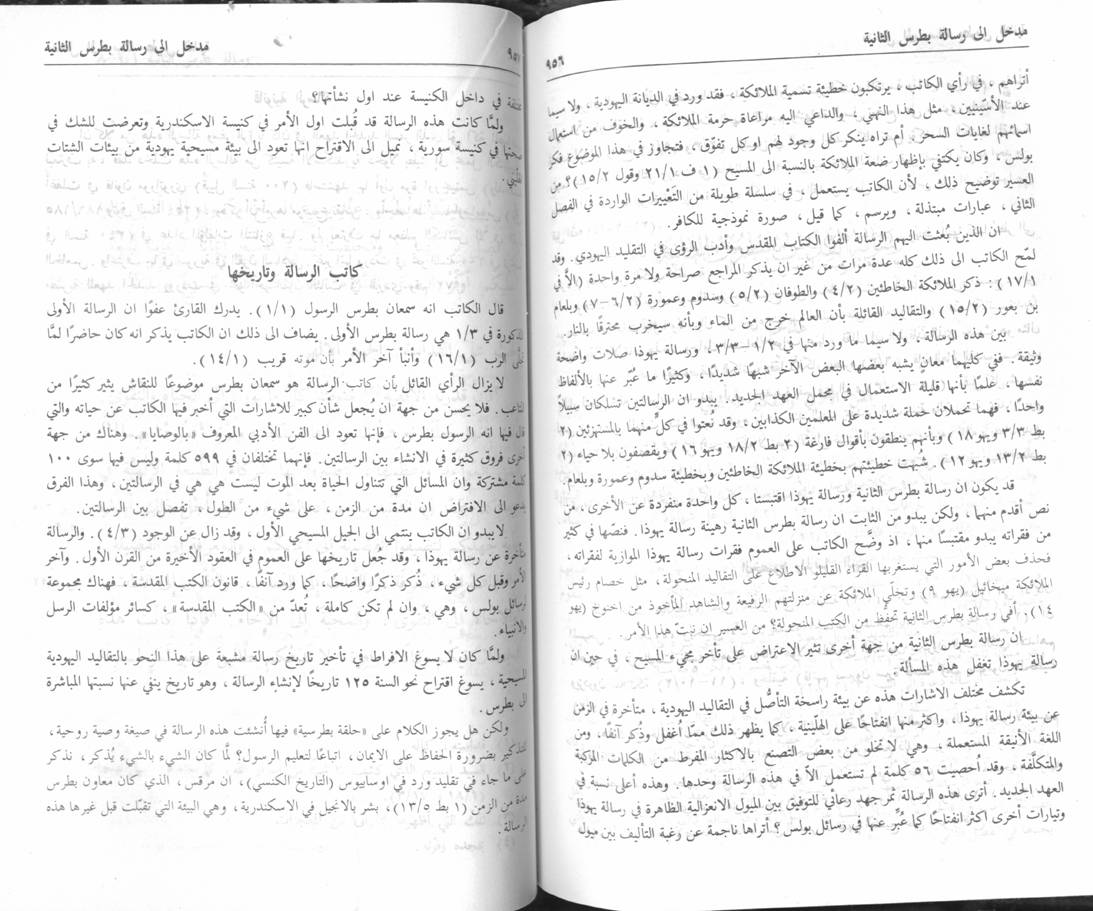 مدخل الى رسالة بطرس الثانية
٩٥٦
أتراهم ، في رأي الكاتب ، يرتكبون خطيئة تسمية الملائكة ، فقد ورد في الديانة اليهودية ، ولا سيما
عند الأسّينيين ، مثل هذا النهي ، والداعي اليه مراعاة حرمة الملائكة ، والخوف من استعمال
اسمائهم لغايات السحر، أم تراه ينكر كل وجود لهم او كل تفوّق ، فتجاوز في هذا الموضوع فكر
بولس ، وكان يكتفي بإظهار ضعة الملائكة بالنسبة الى المسيح (١ ف ٢١/١ وقول ١٥/٢)؟ من
العسير توضيح ذلك ، لأن الكاتب يستعمل ، في سلسلة طويلة من التعييرات الواردة في الفصل
الثاني ، عبارات مبتذلة ، ويرسم ، كما قيل ، صورة نموذجية للكافر.
ان الذين بُعثت اليهم الرسالة ألفوا الكتاب المقدس وأدب الرؤى في التقليد اليهودي. وقد
لمّح الكاتب الى ذلك كله عدة مرات من غير ان يذكر المراجع صراحة ولا مرة واحدة (الاّ في
١٧/١) : ذكر الملائكة الخاطئين (٤/٢) والطوفان (٥/٢) وسدوم وعمورة (٦/٢-٧) وبلعام
بن بعور (١٥/٢) والتقاليد القائلة بأن العالم خرج من الماء وبأنه سيخرب محترقًا بالنار.
بين هذه الرسالة ، ولا سيما ما ورد منها في ١/٢-٣/٣، ورسالة يهوذا صلات واضحة
وثيقة . ففي كليهما معانٍ يشبه بعضها البعض الآخر شبهًا شديدًا ، وكثيرًا ما عُبّر عنها بالألفاظ
نفسها ، علمًا بأنها قليلة الاستعمال في مجمل العهد الجديد. يبدو ان الرسالتين تسلكان سبيلاً
واحدًا ، فهما تحملان حملة شديدة على المعلمين الكذابين، وقد نُعتوا في كلٍّ منهما بالمستهزئين (٢
بط ٣/٣ ويهو ١٨) وبأنهم ينطقون بأقوال فارغة (٢ بط ١٨/٢ ويهو ١٦) ويقصفون بلا حياء (٢
بط ١٣/٢ ويهو ١٢) . شُبهت خطيئتهم بخطيئة الملائكة الخاطئين وبخطيئة سدوم وعمورة وبلعام.
قد يكون ان رسالة بطرس الثانية ورسالة يهوذا اقتبستا ، كل واحدة متفردة عن الأخرى ، من
نص أقدم منهما ، ولكن يبدو من الثابت ان رسالة بطرس الثانية رهينة رسالة يهوذا . فنصّها في كثير
من فقراته يبدو مقتبسًا منها ، اذ وضّح الكاتب على العموم فقرات رسالة يهوذا الموازية لفقراته ،
فحذف بعض الأمور التي يستغربها القراء القليلو الاطلاع على التقاليد المنحولة ، مثل خصام رئيس
الملائكة ميخائيل (يهو ٩) وتخلّي الملائكة عن منزلتهم الرفيعة والشاهد المأخوذ من اخنوخ (يهو
١٤). أفي رسالة بطرس الثانية تحفّظ من الكتب المنحولة؟ من العسير ان نبتّ هذا الأمر.
ان رسالة بطرس الثانية من جهة أخرى تثير الاعتراض على تأخر مجيء المسيح ، في حين ان
رسالة يهوذا تغفل هذه المسألة.
تكشف مختلف الاشارات هذه عن بيئة راسخة التأصُّل في التقاليد اليهودية ، متأخرة في الزمن
عن بيئة رسالة يهوذا ، واكثر منها انفتاحًا على الهلّينية ، كما يظهر ذلك ممّا أُغفل وذُكر آنفًا، ومن
اللغة الأنيقة المستعملة ، وهي لا تخلو من بعض التصنع بالاكثار المفرط من الكلمات المركبة
والمتكلَّفة ، وقد أُحصيت ٥٦ كلمة لم تستعمل الاّ في هذه الرسالة وحدها. وهذه أعلى نسبة في
العهد الجديد. أترى هذه الرسالة ثمر جهد رعائي للتوفيق بين الميول الانعزالية الظاهرة في رسالة يهوذا
وتيارات أخرى اكثر انفتاحًا كما عُبِّر عنها في رسائل بولس ؟ أتراها ناجمة عن رغبة التأليف بين ميول
مدخل الى رسالة بطرس الثانية
في داخل الكنيسة عند اول نشأتها؟
ولمّا كانت هذه الرسالة قد قُبلت اول الأمر في كنيسة الاسكندرية وتعرضت للشك في
صحتها في كنيسة سورية ، تميل الى الاقتراح انها تعود الى بيئة مسيحية يهودية من بيئات الشتات
كاتب الرسالة وتاريخها
قال الكاتب انه سمعان بطرس الرسول (١/١). يدرك القارئ عفوًا ان الرسالة الأولى
المذكورة في ١/٣ هي رسالة بطرس الأولى. يضاف الى ذلك ان الكاتب يذكر انه كان حاضرًا لمّا
الرب (١٦/١) وأنبأ آخر الأمر بأن موته قريب (١٤/١).
لا يزال الرأي القائل بأن كاتب الرسالة هو سمعان بطرس موضوعًا للنقاش يثير كثيرًا من
المتاعب . فلا يحسن من جهة ان يُجعل شأن كبير للاشارات التي أخبر فيها الكاتب عن حياته والتي
قال فيها انه الرسول بطرس ، فإنها تعود الى الفن الأدبي المعروف «بالوصايا». وهناك من جهة
أخرى فروق كثيرة في الانشاء بين الرسالتين. فإنهما تختلفان في ٥٩٩ كلمة وليس فيها سوى ١٠٠
كلمة مشتركة وان المسائل التي تتناول الحياة بعد الموت ليست هي هي في الرسالتين ، وهذا الفرق
يدعو الى الافتراض ان مدة من الزمن ، على شيء من الطول ، تفصل بين الرسالتين.
لا يبدو ان الكاتب ينتمي الى الجيل المسيحي الأول ، وقد زال عن الوجود (٤/٣). والرسالة
متأخرة عن رسالة يهوذا ، وقد جُعل تاريخها على العموم في العقود الأخيرة من القرن الأول. وآخر
الأمر وقبل كل شيء ، ذُكر ذكرًا واضحًا ، كما ورد آنفًا ، قانون الكتب المقدسة ، فهناك مجموعة
لرسائل بولس ، وهي ، وان لم تكن كاملة ، تُعدّ من «الكتب المقدسة» ، كسائر مؤلفات الرسل
والانبياء.
ولمّا كان لا يسوغ الافراط في تأخير تاريخ رسالة مشبعة على هذا النحو بالتقاليد اليهودية
المسيحية ، يسوغ اقتراح نحو السنة ١٢٥ تاريخًا لإنشاء الرسالة ، وهو تاريخ ينفي عنها نسبتها المباشرة
الى بطرس .
ولكن هل يجوز الكلام على «حلقة بطرسية» فيها أُنشئت هذه الرسالة في صيغة وصية روحية ،
للتذكير بضرورة الحفاظ على الايمان ، اتباعًا لتعليم الرسول؟ لمّا كان الشيء بالشيء يُذكر ، نذكر
ما جاء في تقليد ورد في اوسابيوس (التاريخ الكنسي) ، ان مرقس ، الذي كان معاون بطرس
مدة من الزمن (١ بط ١٣/٥) ، بشر بالانجيل في الاسكندرية ، وهي البيئة التي تقبّلت قبل غيرها هذه
الرسالة .